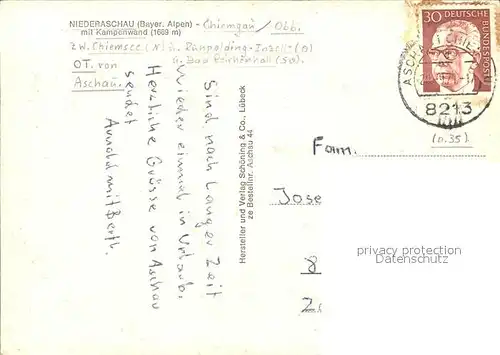 NIEDERASCHAU (Bayer. Alpen) - Chiemgau/Obb.
mit Kampenwand (1669 m)
zw. Chiemsee (N) u. Ruhpolding-Inzell (O)
OT. von
u. Bad Reichenhall (SO).
Aschau.
Sind nach langer Zeit
wieder einmal in Urlaub.
Herzliche Grüsse von Aschau
sendet
Arnold mit Berth.
Hersteller und Verlag Schöning & Co., Lübeck
zu Bestellnr. Aschau 44
30 DEUTSCHE
BUNDESPOST
ASCHAU I CHIEMGAU
8213
(0.35)
Fam.
Jose
8
privacy protection
Datenschutz